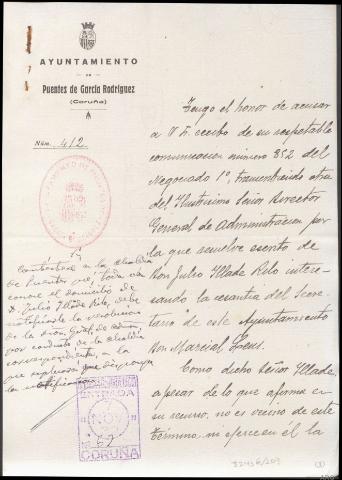 AYUNTAMIENTO
DE
Puentes de García Rodríguez
(Coruña)
Núm. 412
Tengo el honor de acusar
a V. E. recibo de su respetable
comunicación número 852 del
Negociado 1º, transcribiendo otra
del Ilustrísimo Señor Director
General de Administración por
la que resuelve escrito de
Don Julio Illade Rilo intere-
sando la cesantía del Secre-
tario de este Ayuntamiento
Don Marcial
Como dicho Señor Illade
a pesar de lo que afirma en
su recurso, no es vecino de este
término, ni ejerce en él la
Contéstese a la Alcaldía
de Puentes que, toda vez
conoce el domicilio de
D. Julio Illade Rilo, debe
notificársele la resolución
de la Dirón. Gral. de Admón.
por conducto de la Alcaldía
correspondiente, a la
que suplicará que disponga
la notificación
ENTRADA
NOV
CORUÑA